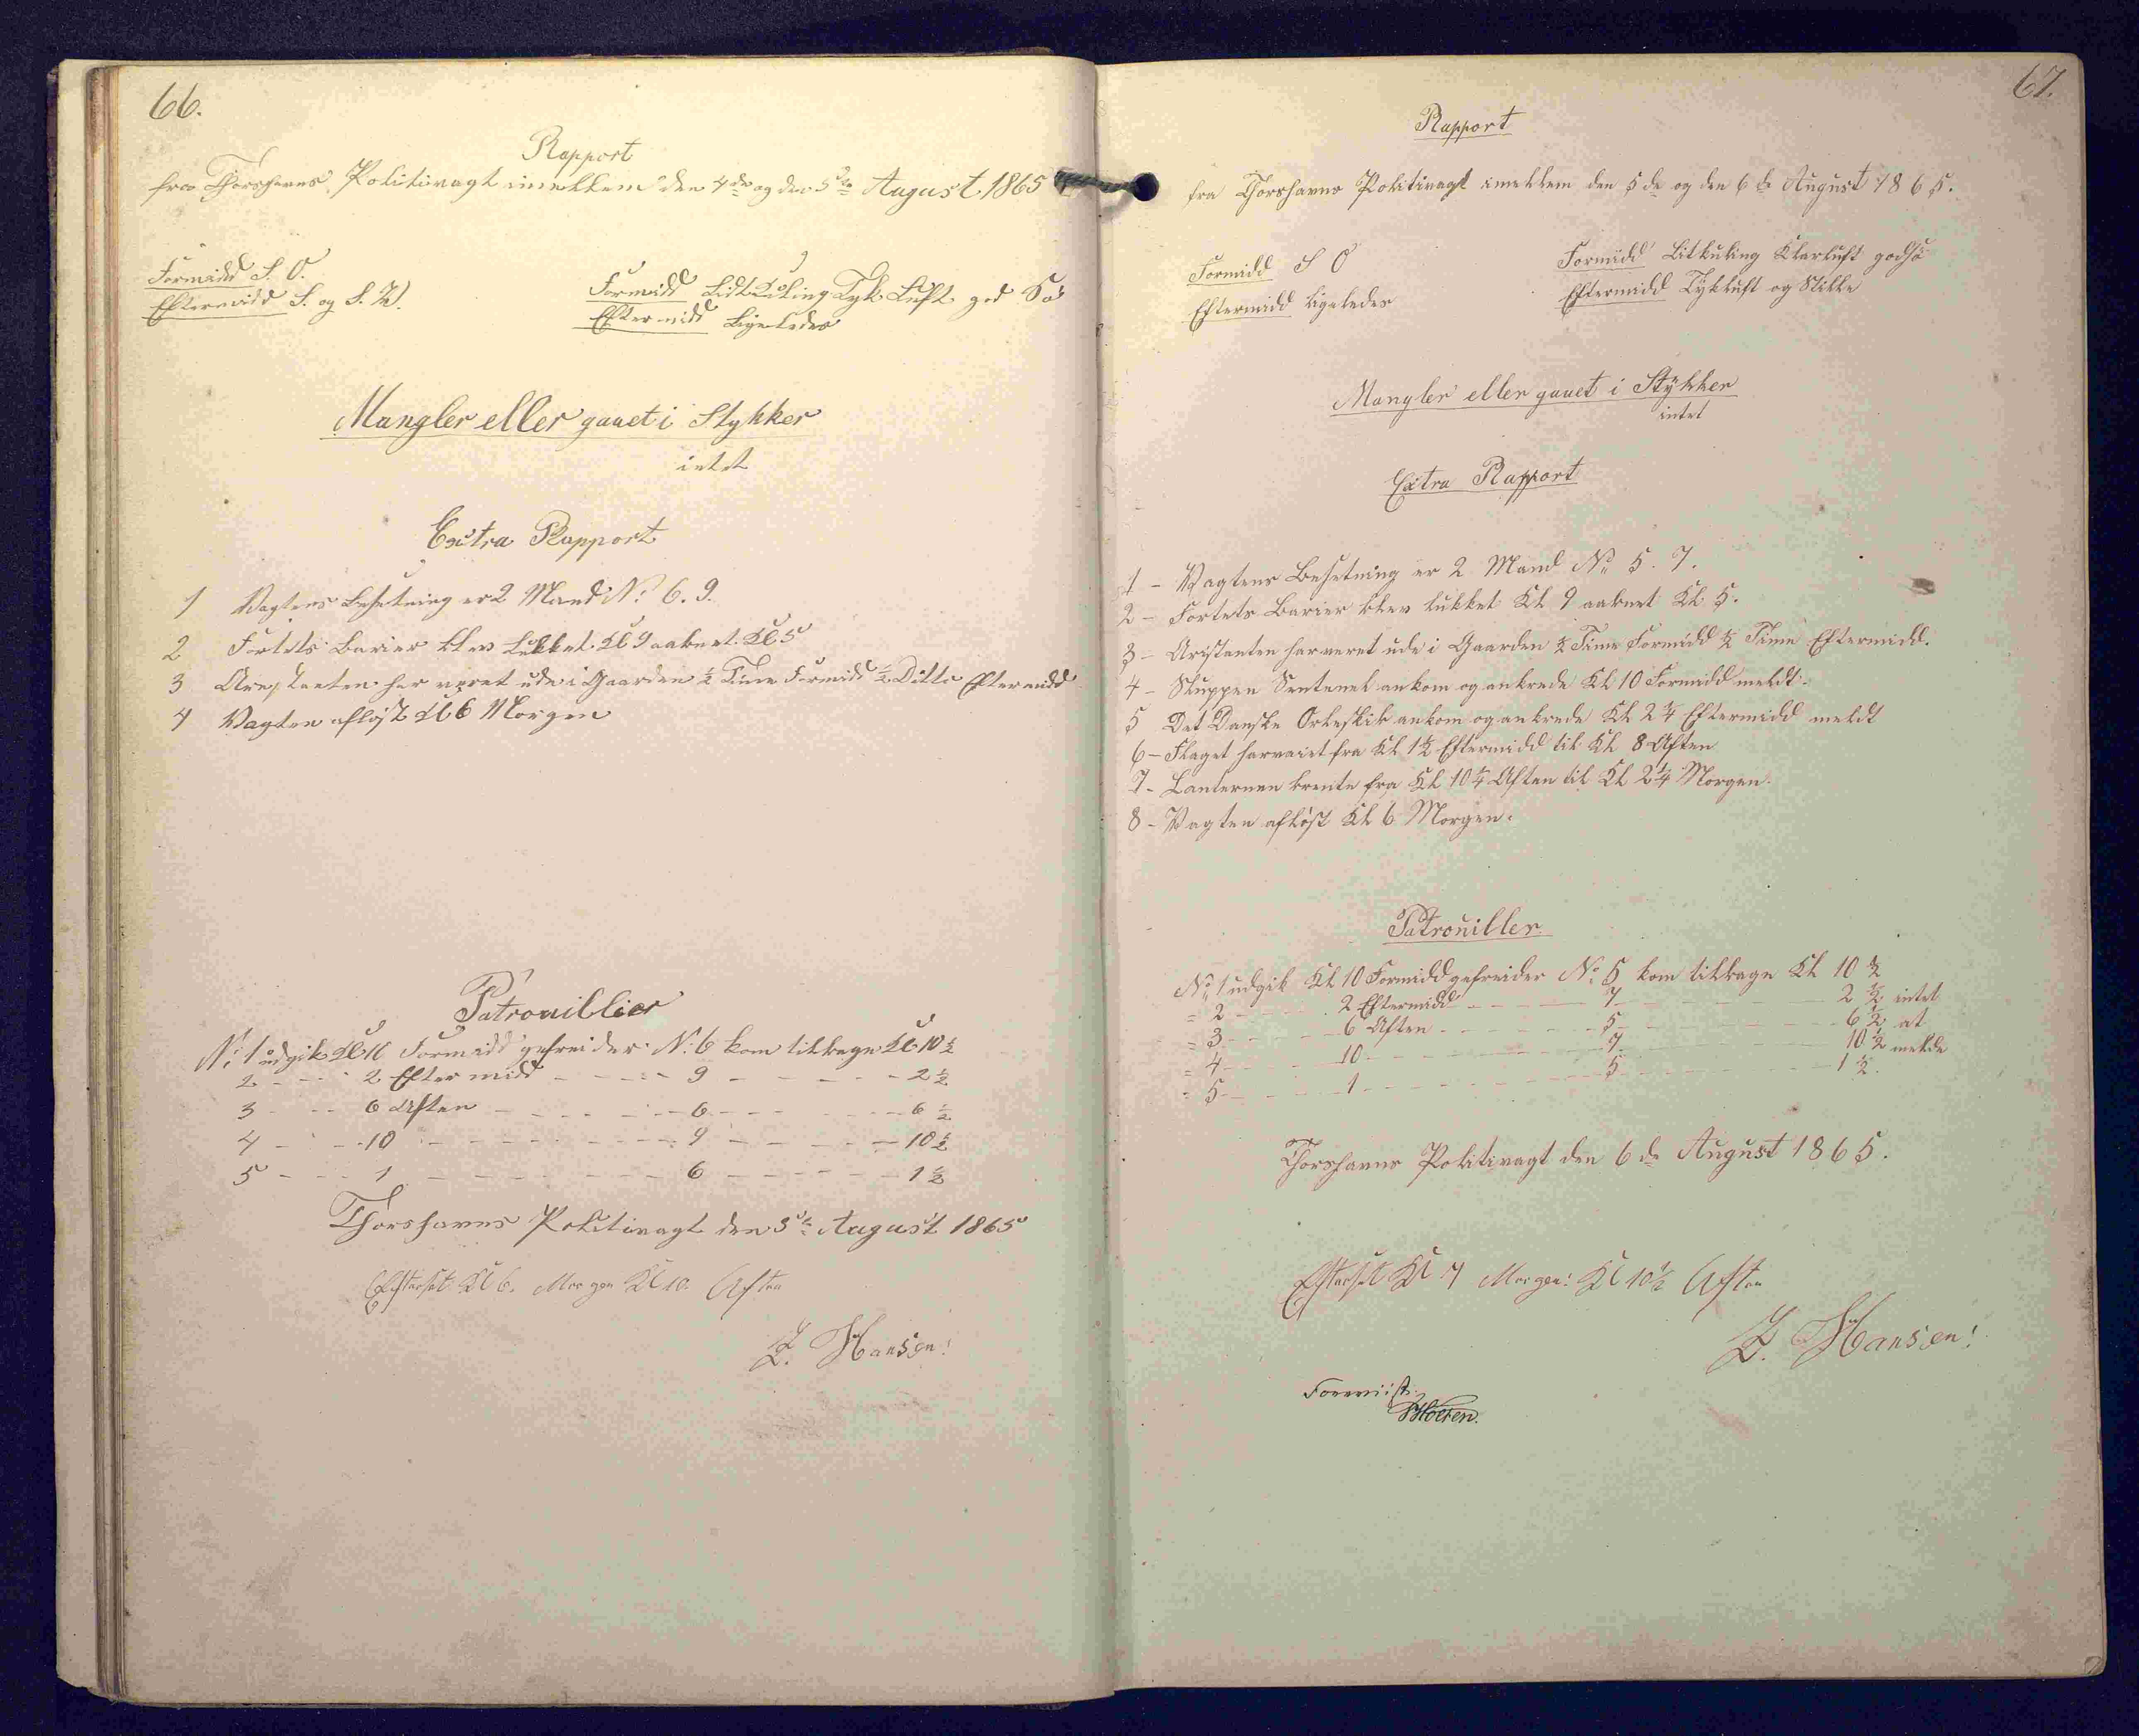 66.
Rapport
fra Thorshavns Politivagt imellem den 4de og den 5te August 1865
Formidd S. O.
Eftermidd S. og S. W.
Formidd Lidt Kuling Tyk Luft god Sø
Eftermidd Ligeledes
Mangler eller gaaet i Stykker
intet
Extra Rapport
1 Vagtens Besetning er 2 Mand No 6. 9.
2 Fortets Barier blev lukket Kl 9 aabnet Kl 5
3 Arestanten har været ude i Gaarden ½ Time Formidd ½ Ditto Eftermidd
4 Vagten afløst Kl 6 Morgen
Patrouiller
No 1 udgik Kl 10 Formidd gefreider No 6 kom tilbage Kl 10 ½
2 - - - 2 Eftermidd - - - 9 - - - 2 ½
3 - - - 6 Aften - - - 6 - - - 6 ½
4 - - - 10 - - - 9 - - - 10 ½
5 - - - 1 - - - 6 - - - 1 ½
Thorshavns Politivagt den 5te August 1865
Efterset Kl 6. Morgen Kl 10. Aften
Hansen!
67.
Rapport
fra Thorshavns Politivagt imellem den 5de og den 6te August 1865.
Formidd S O
Eftermidd ligeledes
Formidd Litkuling Klarluft godsø
Eftermidd Tykluft og Stille
Mangler eller gaaet i Stykker
intet
Extra Rapport
1 - Vagtens Besetning er 2 Mand No 5. 7.
2 - Fortets Barier blev lukket Kl 9 aabnet Kl 5.
3 - Aristanten har veret ude i Gaarden ½ Time Formidd ½ Time Eftermidd.
4 - Sluppen Sentenel ankom og ankrede Kl 10 Formidd meldt.
5 Det Danske Orlogskib ankom og ankrede Kl 2 ¼ Eftermidd meldt
6 - Flaget har vaiet fra Kl 1½ Eftermidd til Kl 8 Aften
7 - Lanternen brente fra Kl 10 ¼ Aften til Kl 2 ¼ Morgen.
8 - Vagten afløst Kl 6 Morgen.
Patrouiller
No 1 udgik Kl 10 Formidd gefreider No 5 kom tilbage Kl 10 ½
= 2 - - - 2 Eftermidd - - - 7 - - - 2 ½ intet
= 3 - - - 6 Aften - - - 5 - - - 6 ½ at
= 4 - - - 10 - - - 7 - - - 10 ½ melde
= 5 - - - 1 - - - 5 - - - 1 ½.
Thorshavns Politivagt den 6te August 1865.
Efterset Kl 7 Morgen: Kl 10½ Aften
Hansen!